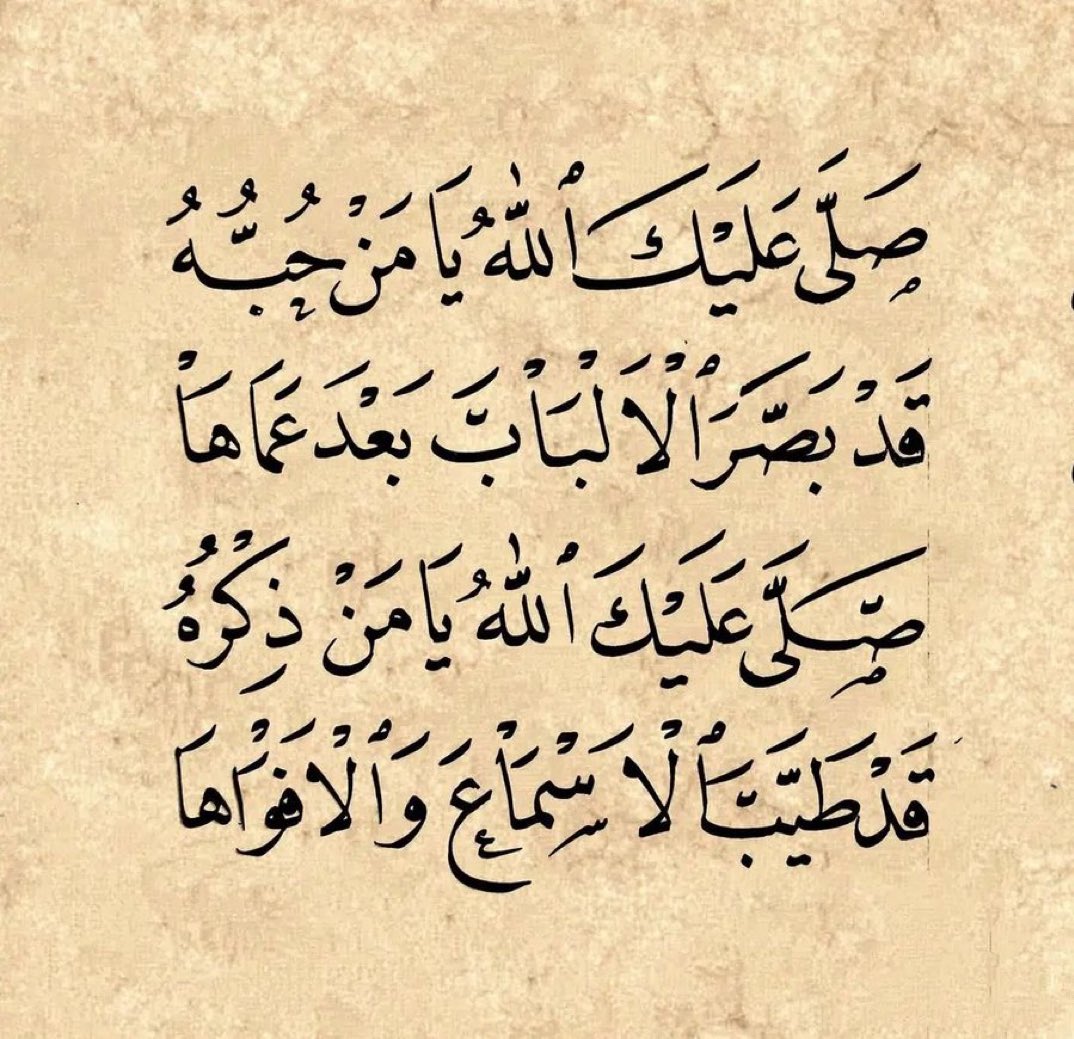 صَلَّى عَلَيْكَ ٱللّٰهُ يَا مَنْ حُبُّهُ
قَدْ بَصَّرَ ٱلْاَلْبَابَ بَعْدَ عَمَاهَا
صَلَّى عَلَيْكَ ٱللّٰهُ يَا مَنْ ذِكْرُهُ
قَدْ طَيَّبَ ٱلْاَسْمَاعَ وَٱلْاَفْوَاهَا